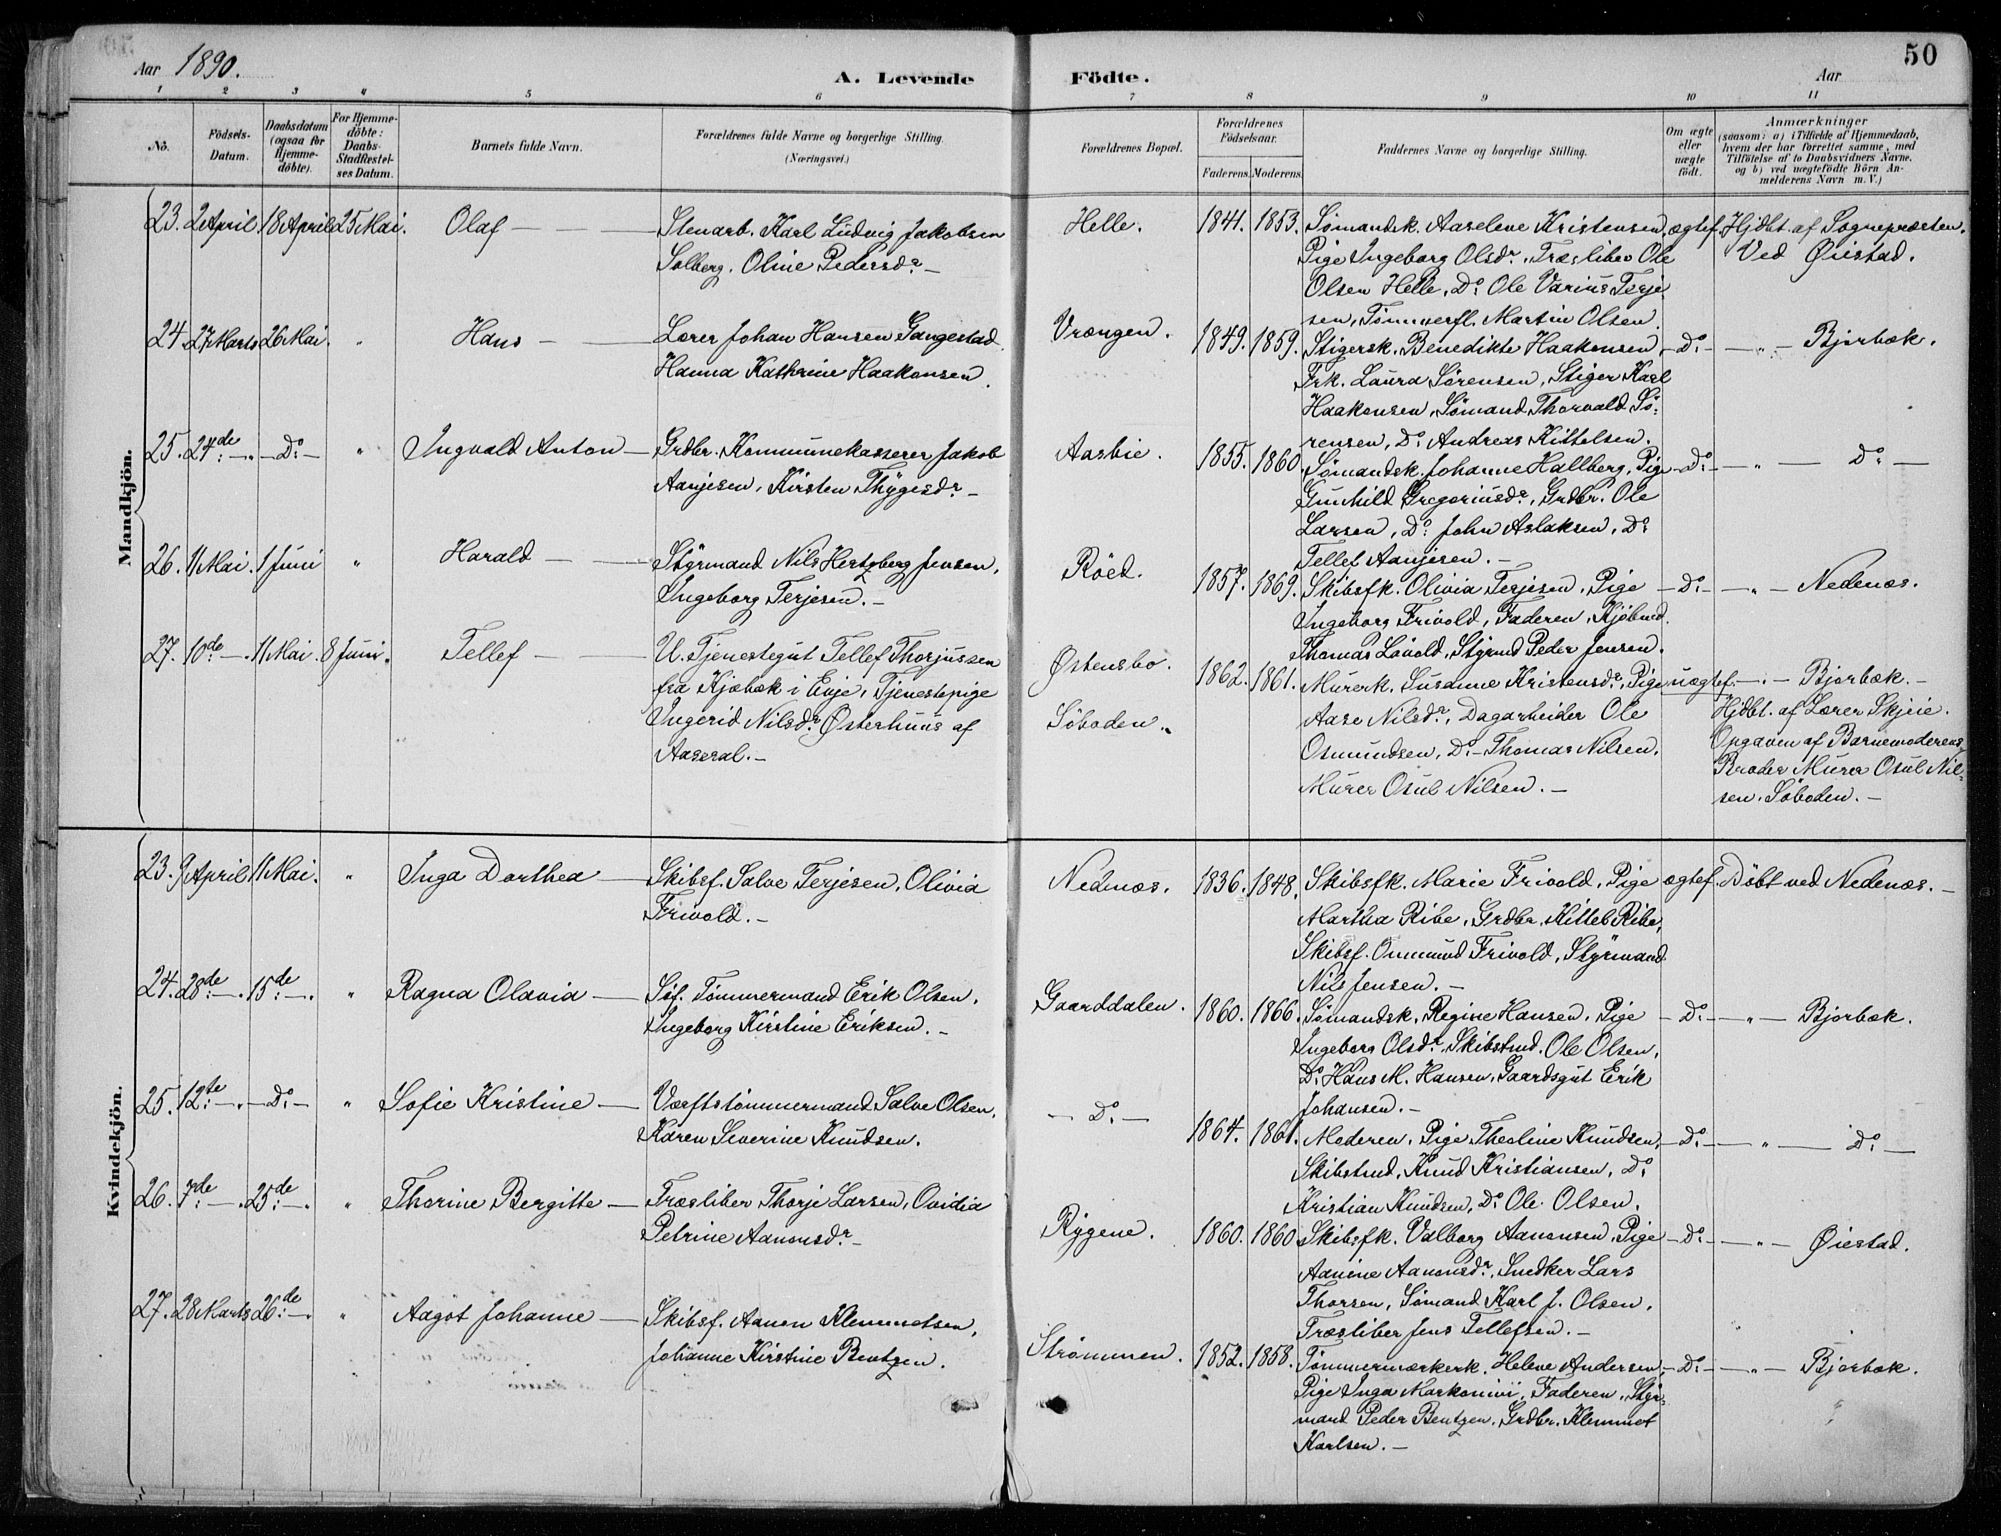 50
Aar 1890.
A. Levende Födte.
Aar
1 2 3 4 5 6 7 8 9 10 11
No.
Födsels-
Datum.
Daabsdatum
(ogsaa for
Hjemme-
döbte).
For Hjemme-
döbte:
Daabs-
Stadfæstel-
ses Datum.
Barnets fulde Navn.
Forældrenes fulde Navne og borgerlige Stilling.
(Næringsvei.)
Forældrenes Bopæl.
Forældrenes
Födselsaar.
Faderens. Moderens.
Faddernes Navne og borgerlige Stilling.
Om ægte
eller
uægte
födt.
Anmærkninger
(saasom: a) i Tilfælde af Hjemmedaab,
hvem der har forrettet samme, med
Tilföielse af to Daabsvidners Navne.
og b) ved uægtefödte Börn An-
melderens Navn m. V.)
Mandkjön.
23. 2 April 18 April 25 Mai. Olaf — Stenarb. Karl Ludvig Jakobsen
Solberg, Oline Pedersdr. —
Helle. 1841. 1853. Sømandsk. Aaselene Kristensen, ægtef. Hjdbt. af Sognepræsten.
Pige Ingeborg Olsdr., Træsliber Ole Ved Øiestad.
Olsen Helle, Do. Ole Varius Terje-
sen, Tømmerfl. Martin Olsen.
24. 27 Marts 26 Mai. " Hans — Lærer Johan Hansen Gangestad,
Hanna Kathrine Haakonsen.
Vrængen. 1849. 1859. Stigersk. Benedikte Haakonsen, — Do. — — " — Bjorbæk.
Frk. Laura Sørensen, Stiger Karl
Haakonsen, Sømand Thorvald Sö-
rensen, Do. Andreas Kittelsen.
25. 24de — " — Do. — " Ingvald Anton — Grdbr. Kommunekasserer Jakob
Aanjesen, Kirsten Thygesdr. —
Aasbie. 1855. 1860. Sømandsk. Johanne Hallberg, Pige — Do. — — " — Do. —
Gunhild Gregoriusdr., Grdbr. Ole
Larsen, Do. John Aslaksen, Do.
Tellef Aanjesen. —
26. 11 Mai. 1 Juni " Harald — Styrmand Nils Hertzberg Jensen,
Ingeborg Terjesen. —
Röed. 1857. 1869. Skibsfk. Olivia Terjesen, Pige — Do. — — " — Nedenæs.
Ingeborg Frivold, Faderen, Kjöbmd.
Thomas Lövold, Styrmd Peder Jensen.
27. 10de — 11 Mai. 8 Juni. Tellef — U. Tjenestegut Tellef Thorjussen
fra Kjøbæk i Evje, Tjenestepige
Ingerid Nilsdr. Østerhuus af
Aaseral. —
Østensbo.
Söboden.
1862. 1861. Murerk. Susanne Kristensdr., Pige uægtef. — " — Bjorbæk. —
Aase Nilsdr., Dagarbeider Ole
Osmundsen, Do. — Thomas Nilsen,
Murer Osul Nilsen. —
Hjdbt. af Lærer Skjeie.
Opgaven af Barnemoderens
Broder Murer Osul Nil-
sen. Söboden. —
Kvindekjön.
23. 9 April 11 Mai. " Inga Dorthea — Skibsf. Salve Terjesen, Olivia
Frivold. —
Nedenæs. 1836. 1848. Skibsfk. Marie Frivold, Pige ægtef. Döbt ved Nedenæs. —
Martha Ribe, Grdbr. Kittel Ribe,
Skibsf. Onmund Frivold, Styrmand
Nils Jensen. —
24. 28de — " 15de — " Ragna Olavia — Söf. Tømmermand Erik Olsen,
Ingeborg Kirstine Eriksen. —
Gaarddalen. 1860. 1866. Sømandsk. Regine Hansen, Pige — Do. — — " — Bjorbæk.
Ingeborg Olsdr., Skibstmd. Ole Olsen,
Do. Hans M. Hansen, Gaardsgut Erik
Johansen. —
25. 12te — " — Do. — " Sofie Kristine — Værftstömmermand Salve Olsen,
Karen Severine Knudsen.
— Do. — 1864. 1861. Moderen, Pige Theoline Knudsen, — Do. — " — Do. —
Skibstmd. Knud Kristiansen, Do.
Kristian Knudsen, Do. Ole Olsen.
26. 7de — " 25de — " Thorine Bergitte — Træsliber Thorje Larsen, Ovidia
Petrine Aanonsdr. —
Rygene. 1860. 1860 Skibsfk. Valborg Aanonsen, Pige — Do. — " — Øiestad.
Aanine Aanonsdr., Snedker Lars
Thorsen, Sømand Karl J. Olsen,
Træsliber Jens Tellefsen. —
27. 28 Marts 26de — " Aagot Johanne — Skibsf. Aanon Klemmetsen,
Johanne Kirstine Bentzen.
Strømmen. 1852. 1858. Tømmermærkerk. Helene Andersen, — Do. — " — Bjorbæk.
Pige Inga Markanivi, Faderen, Styr-
mand Peder Bentzen, Grdbr. Klemmet
Karlsen. —